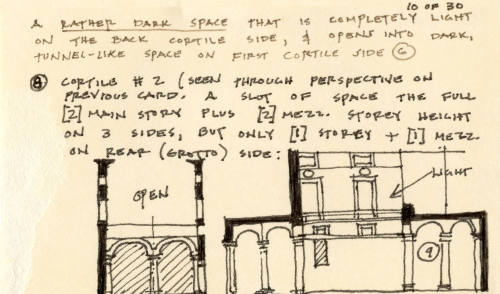 10 OF 30
A RATHER DARK SPACE THAT IS COMPLETELY LIGHT
ON THE BACK CORTILE SIDE, & OPENS INTO DARK,
TUNNEL-LIKE SPACE ON FIRST CORTILE SIDE
⑧ CORTILE #2 (SEEN THROUGH PERSPECTIVE ON
PREVIOUS CARD. A SLOT OF SPACE THE FULL
[2] MAIN STORY PLUS [2] MEZZ. STOREY HEIGHT
ON 3 SIDES, BUT ONLY [1] STOREY + [1] MEZZ
ON REAR (GROTTO) SIDE:
OPEN
LIGHT